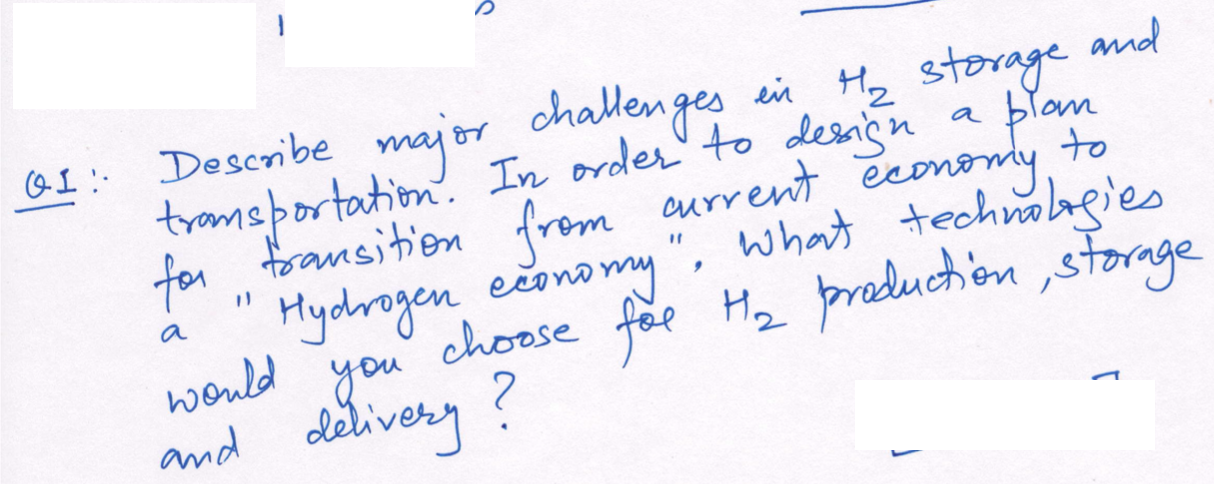 Q1:. Describe major challenges in H₂ storage and
transportation. In order to design a plan
for transition from current economy to
a "Hydrogen economy", what technologies
would you choose for H₂ production, storage
and delivery?